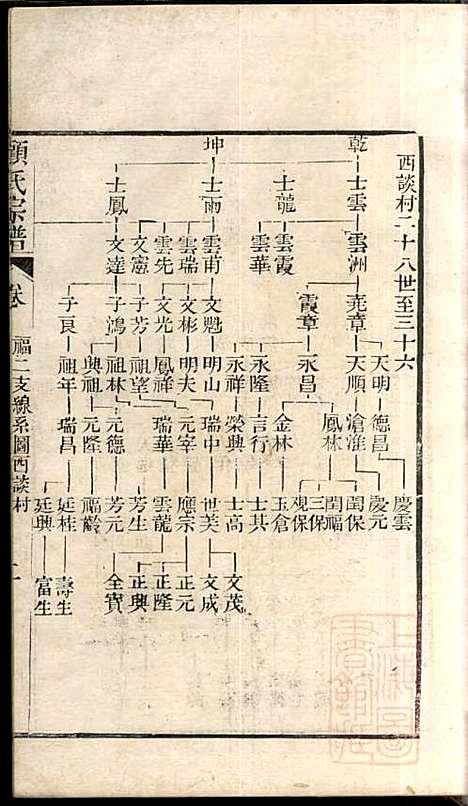 西談村二十八世至三十六
乾 坤
士雲 士龍 士雨 士鳳
雲洲 雲霞 雲華 雲甫 雲瑞 雲先 文憲 文達
堯章 霞章 文魁 文彬 文光 子芳 子鴻 子良
天明 天順 永昌 永隆 永祥 明山 明夫 鳳祥 祖望 祖林 興祖 祖年
德昌 滄淮 鳳林 金林 言行 榮興 瑞中 元宰 瑞華 元德 元隆 瑞昌
慶雲 慶元 閏保 閏福 三保 观保 玉倉 士其 士高 世美 應宗 雲龍 芳生 芳元 福齡 廷桂 廷興
文茂 文成 正元 正隆 正興 全寶 壽生 富生
顧氏宗譜
卷
福二支線系圖西談村